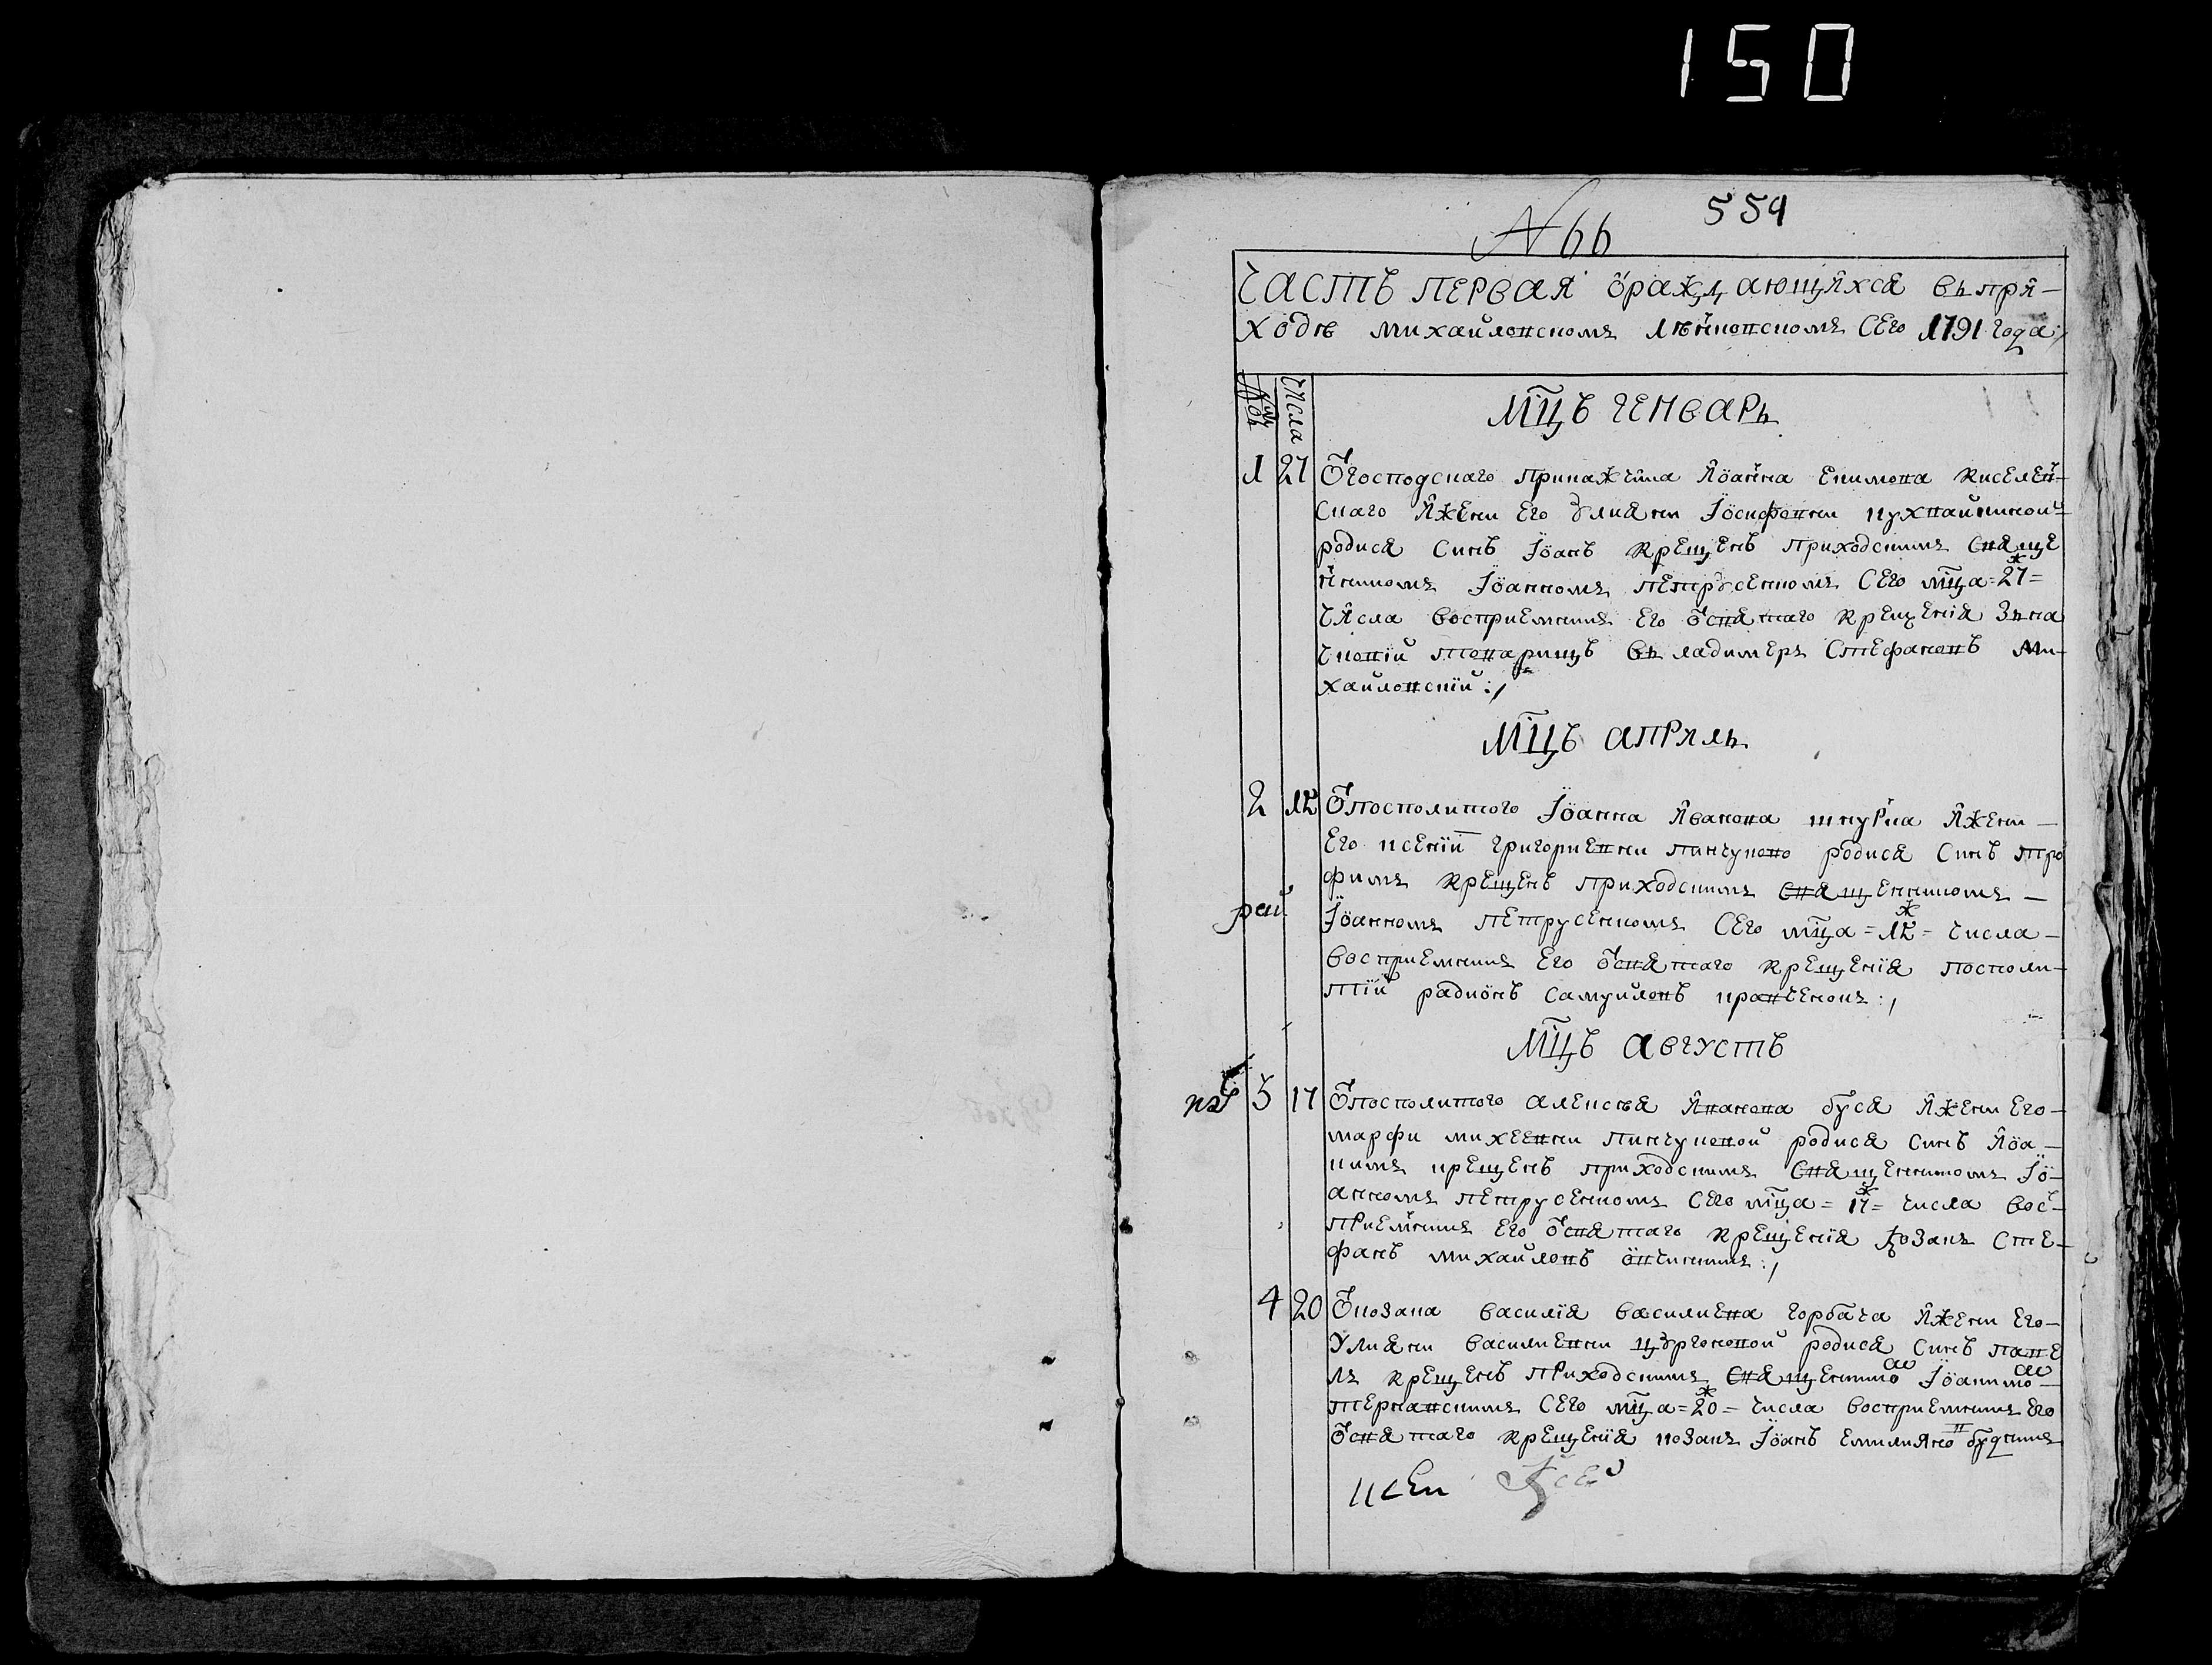 150
554
№ 66
ЧАСТЬ ПЕРВАЯ ѡраждающихся въ при-
ходѣ михайловском сего 1791 года
Числа
МЦЪ ГЕНВАРЬ
1 27 Ѿ господскаго Іоанна
Ижени его Улияни Іосифовни
родися синъ Іоанъ крещенъ приходским свяще
нником Іоанном Петрусенком сего мца = 27 =
числа восприемник его ѿ святаго крещения зна
чковий товарищъ въ ладимеръ Стефановъ Ми-
хайловский
МЦЪ АПРИЛЬ
2 12 Ѿ посполитого Іоанна Иванова Ижени
его ксенїи григориевни родися синъ тро
фим крещенъ приходским священником
Іоанном Петрусенком сего мца = 12 = числа
восприемник его ѿ святаго крещения посполи-
тїй радионъ самуйловъ кравченок
МЦЪ АВГУСТЪ
3 17 Ѿ посполитого алексѣя Иванова буся Ижени его
марфи михеевни родися синъ Иоа-
ким крещенъ приходским священником Іо-
анном Петрусенком сего мца = 17 = числа вос-
приемник его ѿ святаго крещения козак Сте-
фанъ михайловъ
4 20 Ѿ козака василїя василиева горбача Ижени его
Улияни василиевни родися синъ паве
лъ крещенъ приходским священником Іоанном
тернавским сего мца = 20 = числа восприемник его
ѿ святаго крещения козак Іоанъ емилиянов